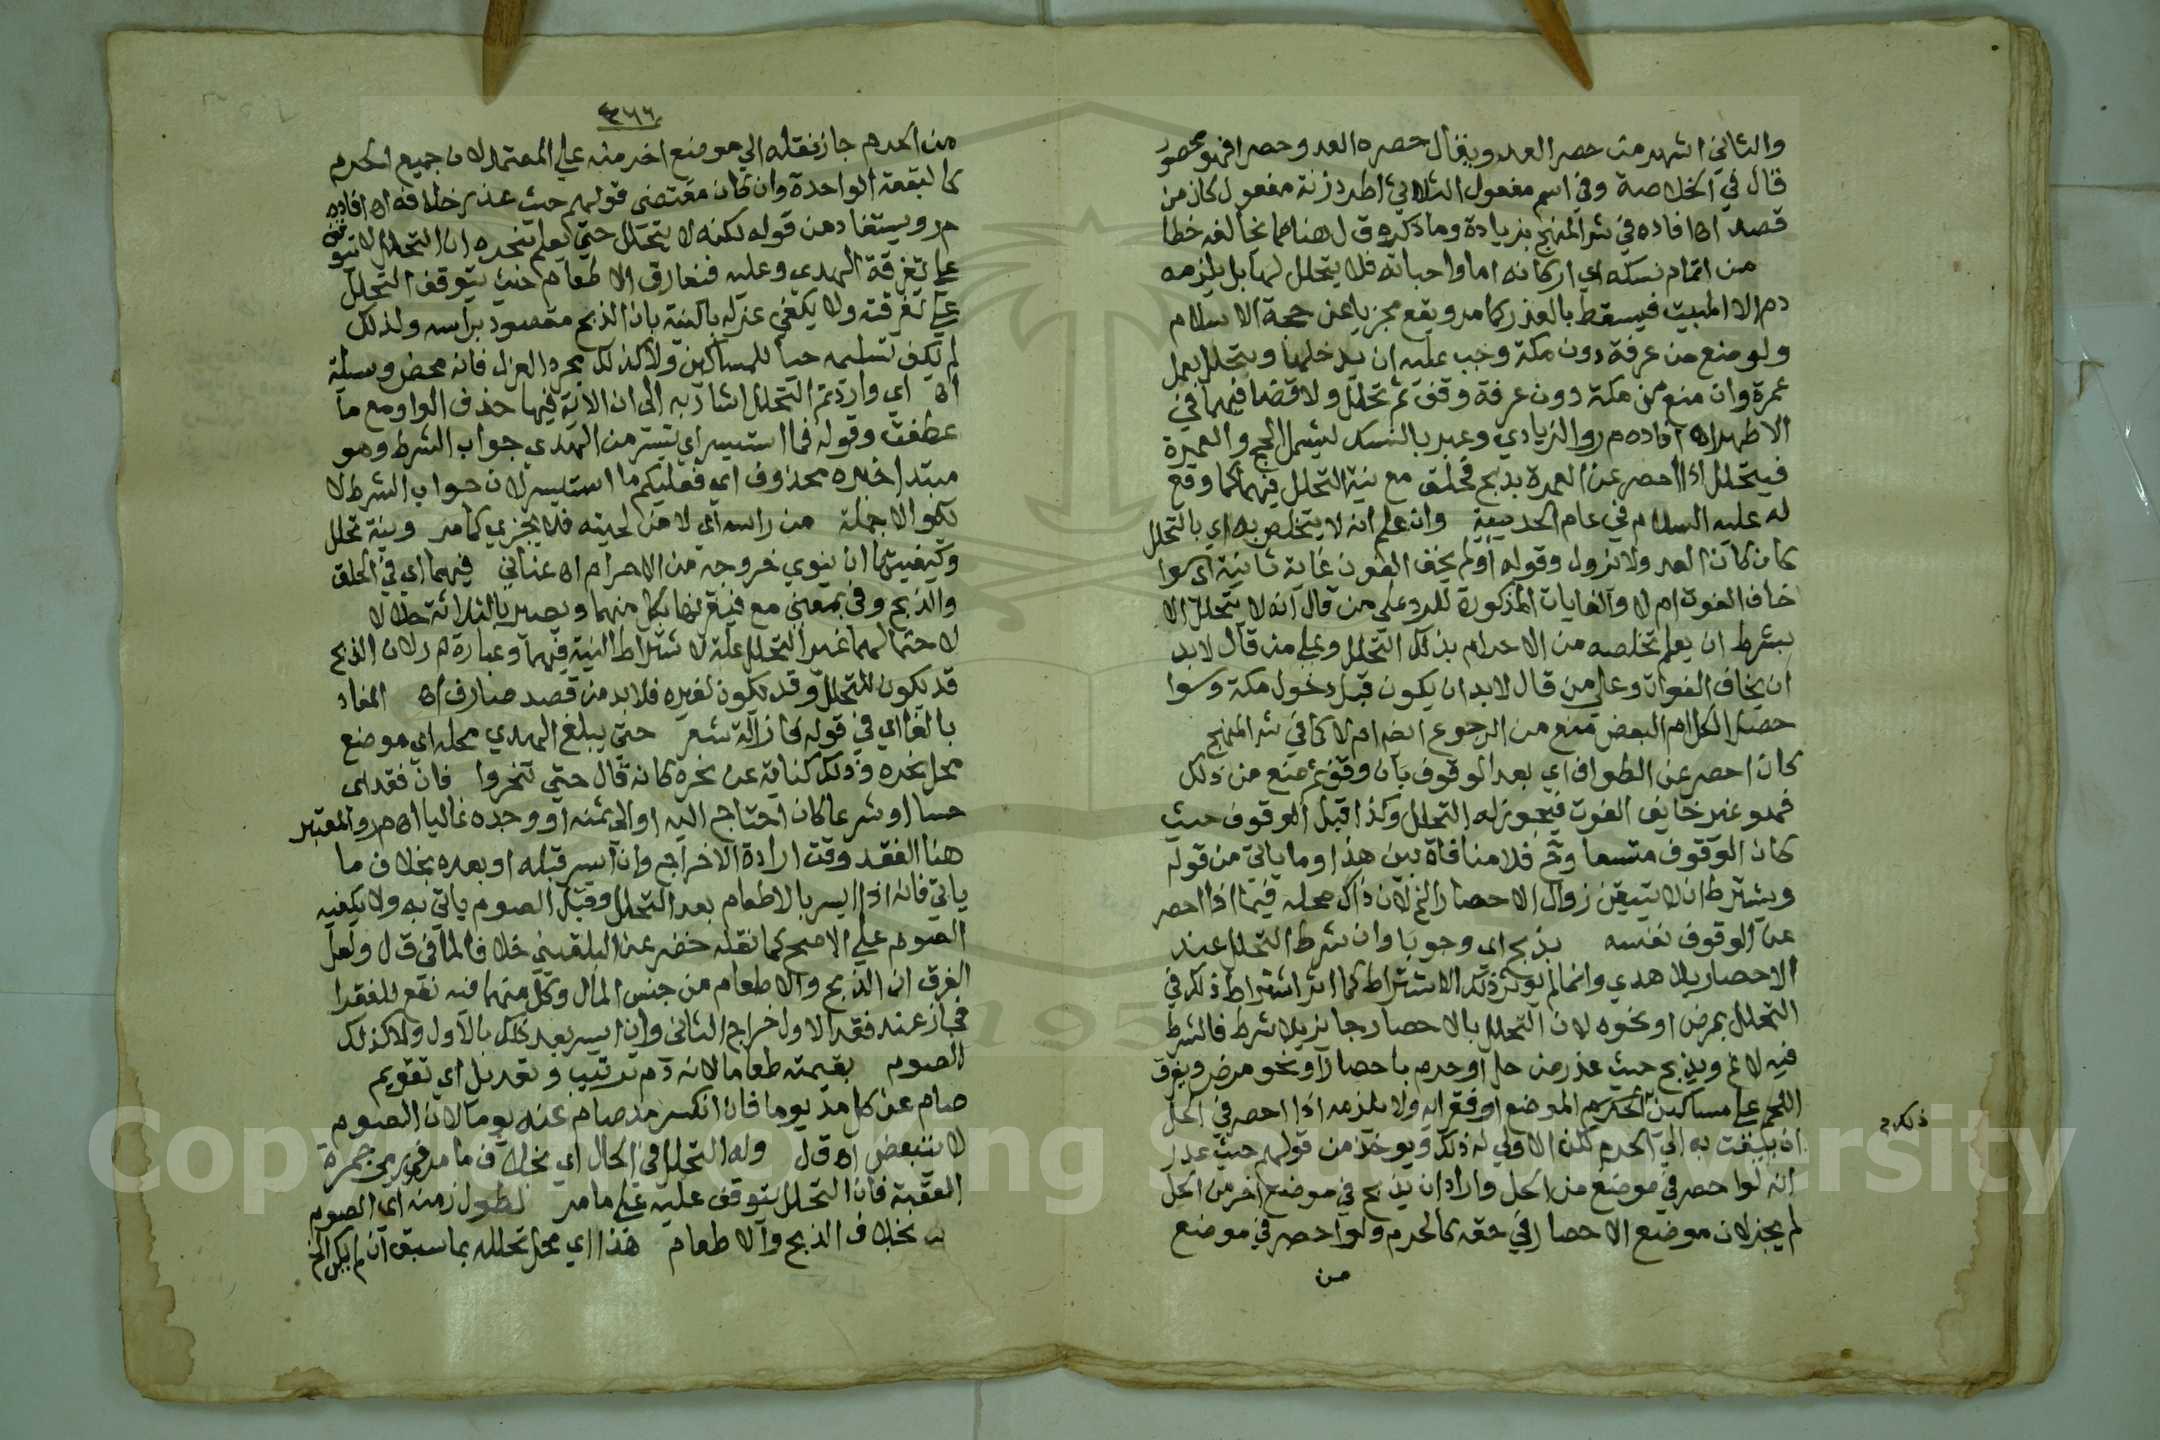 والثاني اشهر من حصر العدو ويقال حصره العدو وحصر فهو محصور
قال في الخلاصة وفي اسم مفعول الثلاثي اطرد زنة مفعول كان من
قصد اه افاده في شر المنهج بزيادة وما ذكره ق ل هنا مما يخالفه خطا
من اتمام نسكه اي اركانه اما واجباته فلا يتحلل لها بل يلزمه
دم الا المبيت فيسقط بالعذر كما مر ويقع مجزيا عن حجة الاسلام
ولو منع من عرفة دون مكة وجب عليه ان يدخلها ويتحلل بعمل
عمرة وان منع من مكة دون عرفة وقف ثم تحلل ولا قضا فيهما في
الاظهر اه افاده م ر والزيادي وعبر بالنسك ليشمل الحج والعمرة
فيتحلل اذا احصر عن العمرة بذبح فحلق مع نية التحلل فيهما كما وقع
له عليه السلام في عام الحديبية وان علم انه لا يتخلص به اي بالتحلل
كان كان العدو لا يزول وقوله او لم يخف الفوت غاية ثانية اي سوا
خاف الفوت ام لا والغايات المذكورة للرد علي من قال انه لا يتحلل الا
بشرط ان يعلم تخلصه من الاحرام بذلك التحلل وعلي من قال لابد
ان يخاف الفوات وعلي من قال لابد ان يكون قبل دخول مكة وسوا
حصل الكل ام البعض منع من الرجوع ايضا ام لا كما في شر المنهج
كان احصر عن الطواف اي بعد الوقوف بان وقف ثم منع من ذلك
فهو غير خايف الفوت فيجوز له التحلل وكذا قبل الوقوف حيث
كان الوقوف متسعا وح فلا منافاة بين هذا وما ياتي من قوله
ويشترط ان لا يتيقن زوال الاحصار الخ لان ذاك محله فيما اذا احصر
عن الوقوف نفسه بذبح اي وجوبا وان شرط التحلل عند
الاحصار بلا هدي وانما لم يوثر ذلك الاشتراط كما اثر اشتراط ذلك في
التحلل بمرض او نحوه لان التحلل بالاحصار جايز بلا شرط فالشرط
فيه لاغ ويذبح حيث عذر من حل او حرم باحصار او نحو مرض ويفرق
اللحم علي مساكين ذلك الموضع او فقرايه ولا يلزمه اذا احصر في الحل
ذلك
ان يبعث به الي الحرم لكن الاولي له ذلك ويوخذ من قولهم حيث عذر
انه لو احصر في موضع من الحل واراد ان يذبح في موضع اخر من الحل
لم يجز لان موضع الاحصار في حقه كالحرم ولو احصر في موضع
من
٣٦٦
من الحرم جاز نقله الي موضع اخر منه علي المعتمد لان جميع الحرم
كالبقعة الواحدة وان كان مقتضي قولهم حيث عذر خلافه اه افاده
م ر ويستفاد من قوله لكنه لا يتحلل حتي يعلم بنحره ان التحلل لا يتوقف
علي تفرقة الهدي وعليه فيفارق الاطعام حيث يتوقف التحلل
علي تفرقته ولا يكفي عزله بالنية بان الذبح مقصود براسه ولذلك
لم يكف تسليمه حيا للمساكين ولا كذلك مجرد العزل فانه محض وسيلة
اه اي واردتم التحلل اشار به الي ان الاية فيها حذف الواو مع ما
عطفت وقوله فما استيسر اي تيسر من الهدي جواب الشرط وهو
مبتدا خبره محذوف اي فعليكم ما استيسر لان جواب الشرط لا
يكون الا جملة من راسه اي لا من لحيته فلا يجزي كما مر ونية تحلل
وكيفيتها ان ينوي خروجه من الاحرام اه عناني فيهما اي في الحلق
والذبح وفي بمعني مع فيقرنها بكل منهما ويصير بالثلاثة حلالا
لاحتمالهما غير التحلل علة لاشتراط النية فيهما وعبارة م ر لان الذبح
قد يكون للتحلل وقد يكون لغيره فلابد من قصد صارف اه المفاد
بالفا اي في قوله فازالة شعر حتي يبلغ الهدي محله اي موضع
محل نحره وذلك كناية عن نحره كانه قال حتي تنحروا فان فقد اي
حسا او شرعا كان احتاج اليه او الي ثمنه او وجده غاليا اه م ر والمعتبر
هنا الفقد وقت ارادة الاخراج وان ايسر قبله او بعده بخلاف ما
ياتي فانه اذا ايسر بالاطعام بعد التحلل وقبل الصوم ياتي به ولا يكفيه
الصوم علي الاصح كما نقله خضر عن البلقيني خلافا لما في ق ل ولعل
الفرق ان الذبح والاطعام من جنس المال وكل منهما فيه نفع للفقرا
فجاز عند فقد الاول اخراج الثاني وان ايسر بعد ذلك بالاول ولا كذلك
الصوم بقيمته طعاما لانه دم ترتيب وتعديل اي تقويم
صام عن كل مد يوما فان انكسر مد صام عنه يوما لان الصوم
لا يتبعض اه ق ل وله التحلل في الحال اي بخلاف ما مر في رمي جمرة
العقبة فان التحلل يتوقف عليه علي ما مر لطول زمنه اي الصوم
بخلاف الذبح والاطعام هذا اي محل تحلله بما سبق ان لم يكن الخ